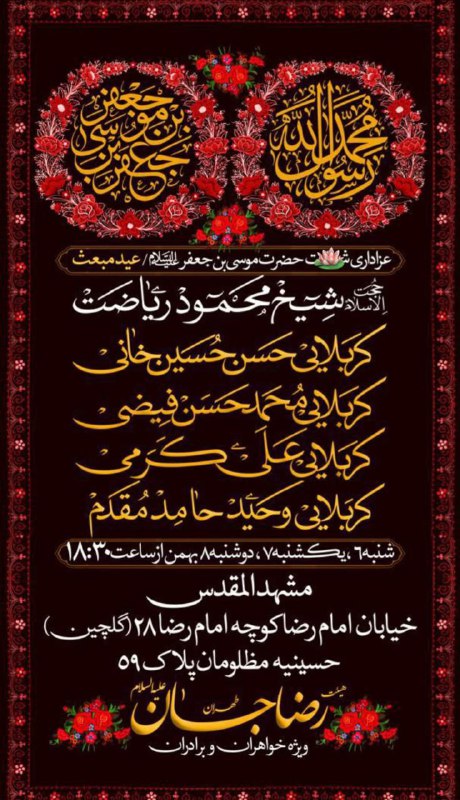 محمد رسول الله
موسی بن جعفر بن
عزاداری شهادت حضرت موسی بن جعفر علیه‌السلام / عید مبعث
حجت الاسلام شیخ محمود ریاضت
کربلایی حسن حسین خانی
کربلایی محمد حسن فیضی
کربلایی علی کرمی
کربلایی وحید حامد مقدم
شنبه ۶ ، یکشنبه ۷ ، دوشنبه ۸ بهمن از ساعت ۱۸:۳۰
مشهدالمقدس
خیابان امام رضا کوچه امام رضا ۲۸ (گلچین)
حسینیه مظلومان پلاک ۵۹
هیئت رضا جان علیه السلام طهران
ویژه خواهران و برادران